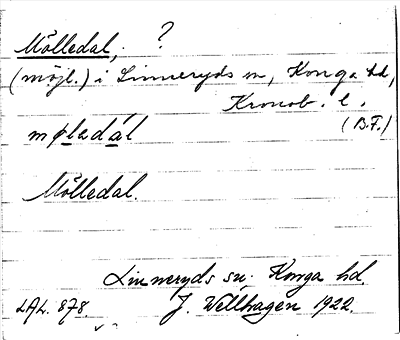 Mölledal, ?
(möjl.) i Linneryds sn, Konga hd,
Kronob. l.
(B.F.)
møladál
Mölledal.
Linneryds sn. Konga hd.
LAL. 878. J. Wellhagen 1922.